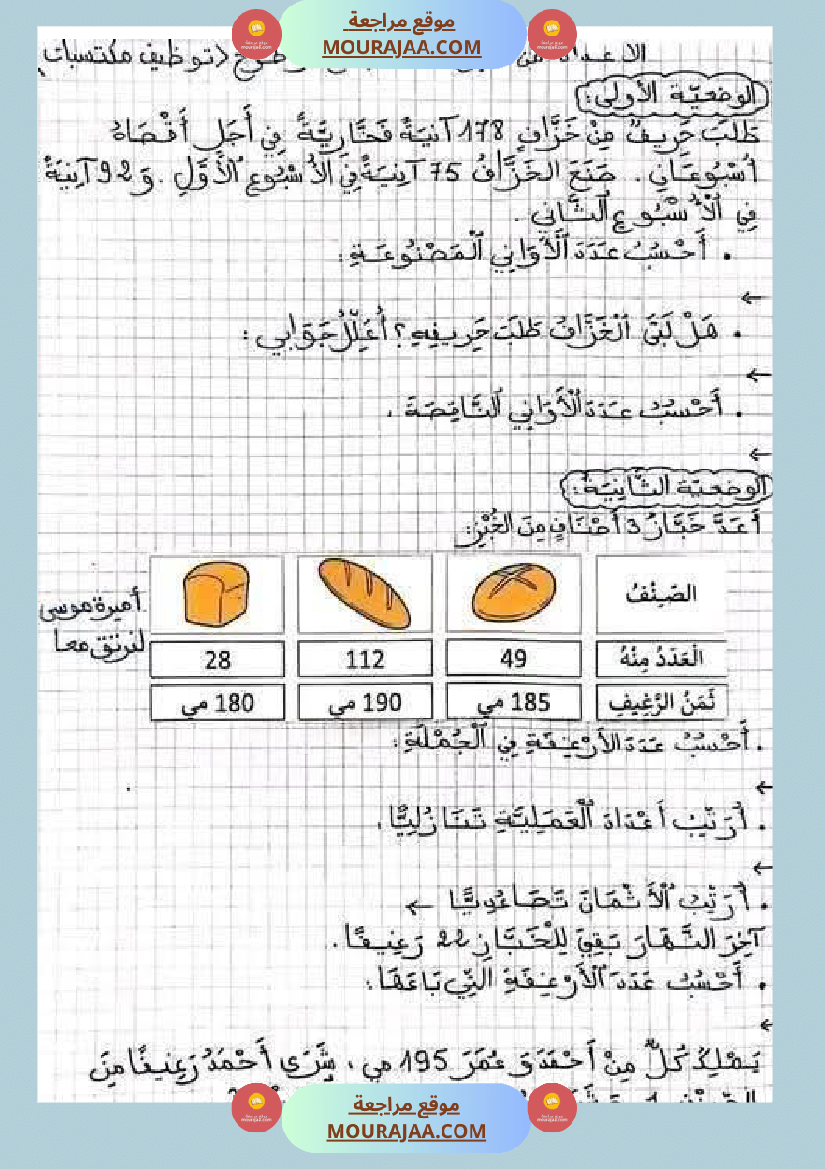 موقع مراجعة
MOURAJAA.COM
توظيف مكتسبات
الوضعيّة الأولى:
طَلَبَ حَرِيفٌ مِنْ خَزَّافٍ 178 آنِيَةً فَخَّارِيَّةً فِي أَجَلٍ أَقْصَاهُ
أُسْبُوعَانِ. صَنَعَ الخَزَّافُ 75 آنِيَةً فِي ٱلْأُسْبُوعِ ٱلْأَوَّلِ. وَ 92 آنِيَةً
فِي ٱلْأُسْبُوعِ ٱلثَّانِي.
• أَحْسُبُ عَدَدَ ٱلْأَوَانِي ٱلْمَصْنُوعَةِ:
←
• هَلْ لَبَّى ٱلْخَزَّافُ طَلَبَ حَرِيفِهِ؟ أُعَلِّلُ جَوَابِي:
←
• أَحْسُبُ عَدَدَ ٱلْأَوَانِي ٱلنَّاقِصَةَ.
←
الوضعيّة الثّانية:
أَعَدَّ خَبَّازٌ 3 أَصْنَافٍ مِنَ الخُبْزِ:
الصِّنْفُ
أميرة موسى
لنرتق معا
الْعَدَدُ مِنْهُ 49 112 28
ثَمَنُ الرَّغِيفِ 185 مي 190 مي 180 مي
• أَحْسُبُ عَدَدَ الأَرْغِفَةِ فِي ٱلْجُمْلَةِ:
←
• أُرَتِّبُ أَعْدَادَ ٱلْعَمَلِيَّةِ تَنَازُلِيًّا.
←
• أُرَتِّبُ ٱلْأَثْمَانَ تَصَاعُدِيًّا ←
آخِرَ النَّهَارِ بَقِيَ لِلْخَبَّازِ 22 رَغِيفًا.
• أَحْسُبُ عَدَدَ ٱلْأَرْغِفَةِ الَّتِي بَاعَهَا:
←
يَمْلِكُ كُلٌّ مِنْ أَحْمَدَ وَ عُمَرَ 195 مي، شَرَى أَحْمَدُ رَغِيفًا مِنَ
موقع مراجعة
MOURAJAA.COM